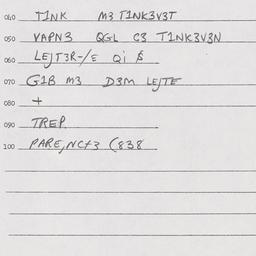 040 T1NK M3 T1NK3V3T
050 VAPN3 QGL C3 T1NK3V3N
060 LEJT3R-/E Qi $
070 G1B M3 D3M LEJTE
080 +
090 TREP.
100 PARE,NCH3 (838